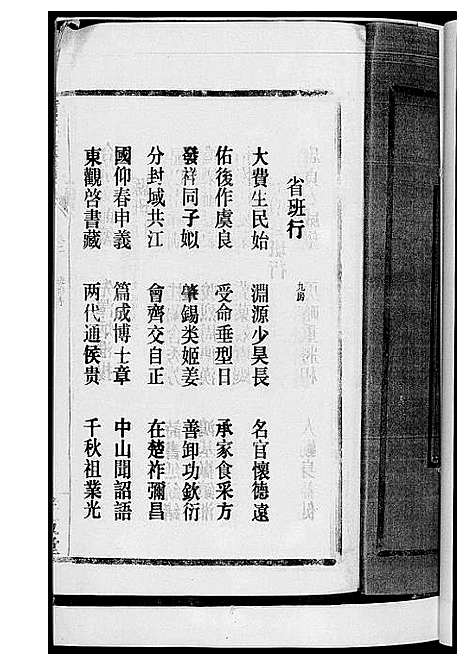 省班行
九房
大費生民始　淵源少昊長　名官懷德遠
佑後作虞良　受命垂型日　承家食采方
發祥同子姒　肇錫类姬姜　善卸功欽衍
分封域共江　會齊交自正　在楚祚彌昌
國仰春申義　篇成博士章　中山聞詔語
東觀啓書藏　两代通侯贵　千秋祖業光